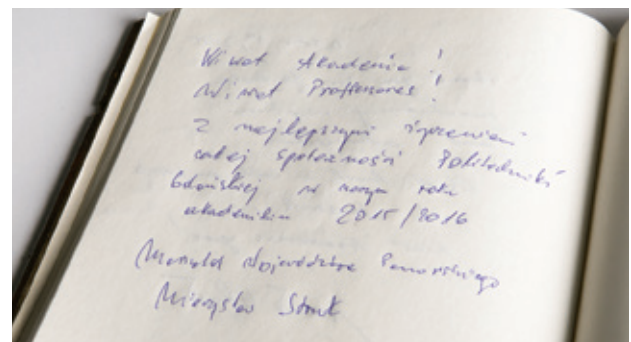 Wiwat Akademia!
Wiwat Proffesores!
Z najlepszymi życzeniami
całej społeczności Politechniki
Gdańskiej w nowym roku
akademickim 2015/2016
Marszałek Województwa Pomorskiego
Mieczysław Struk